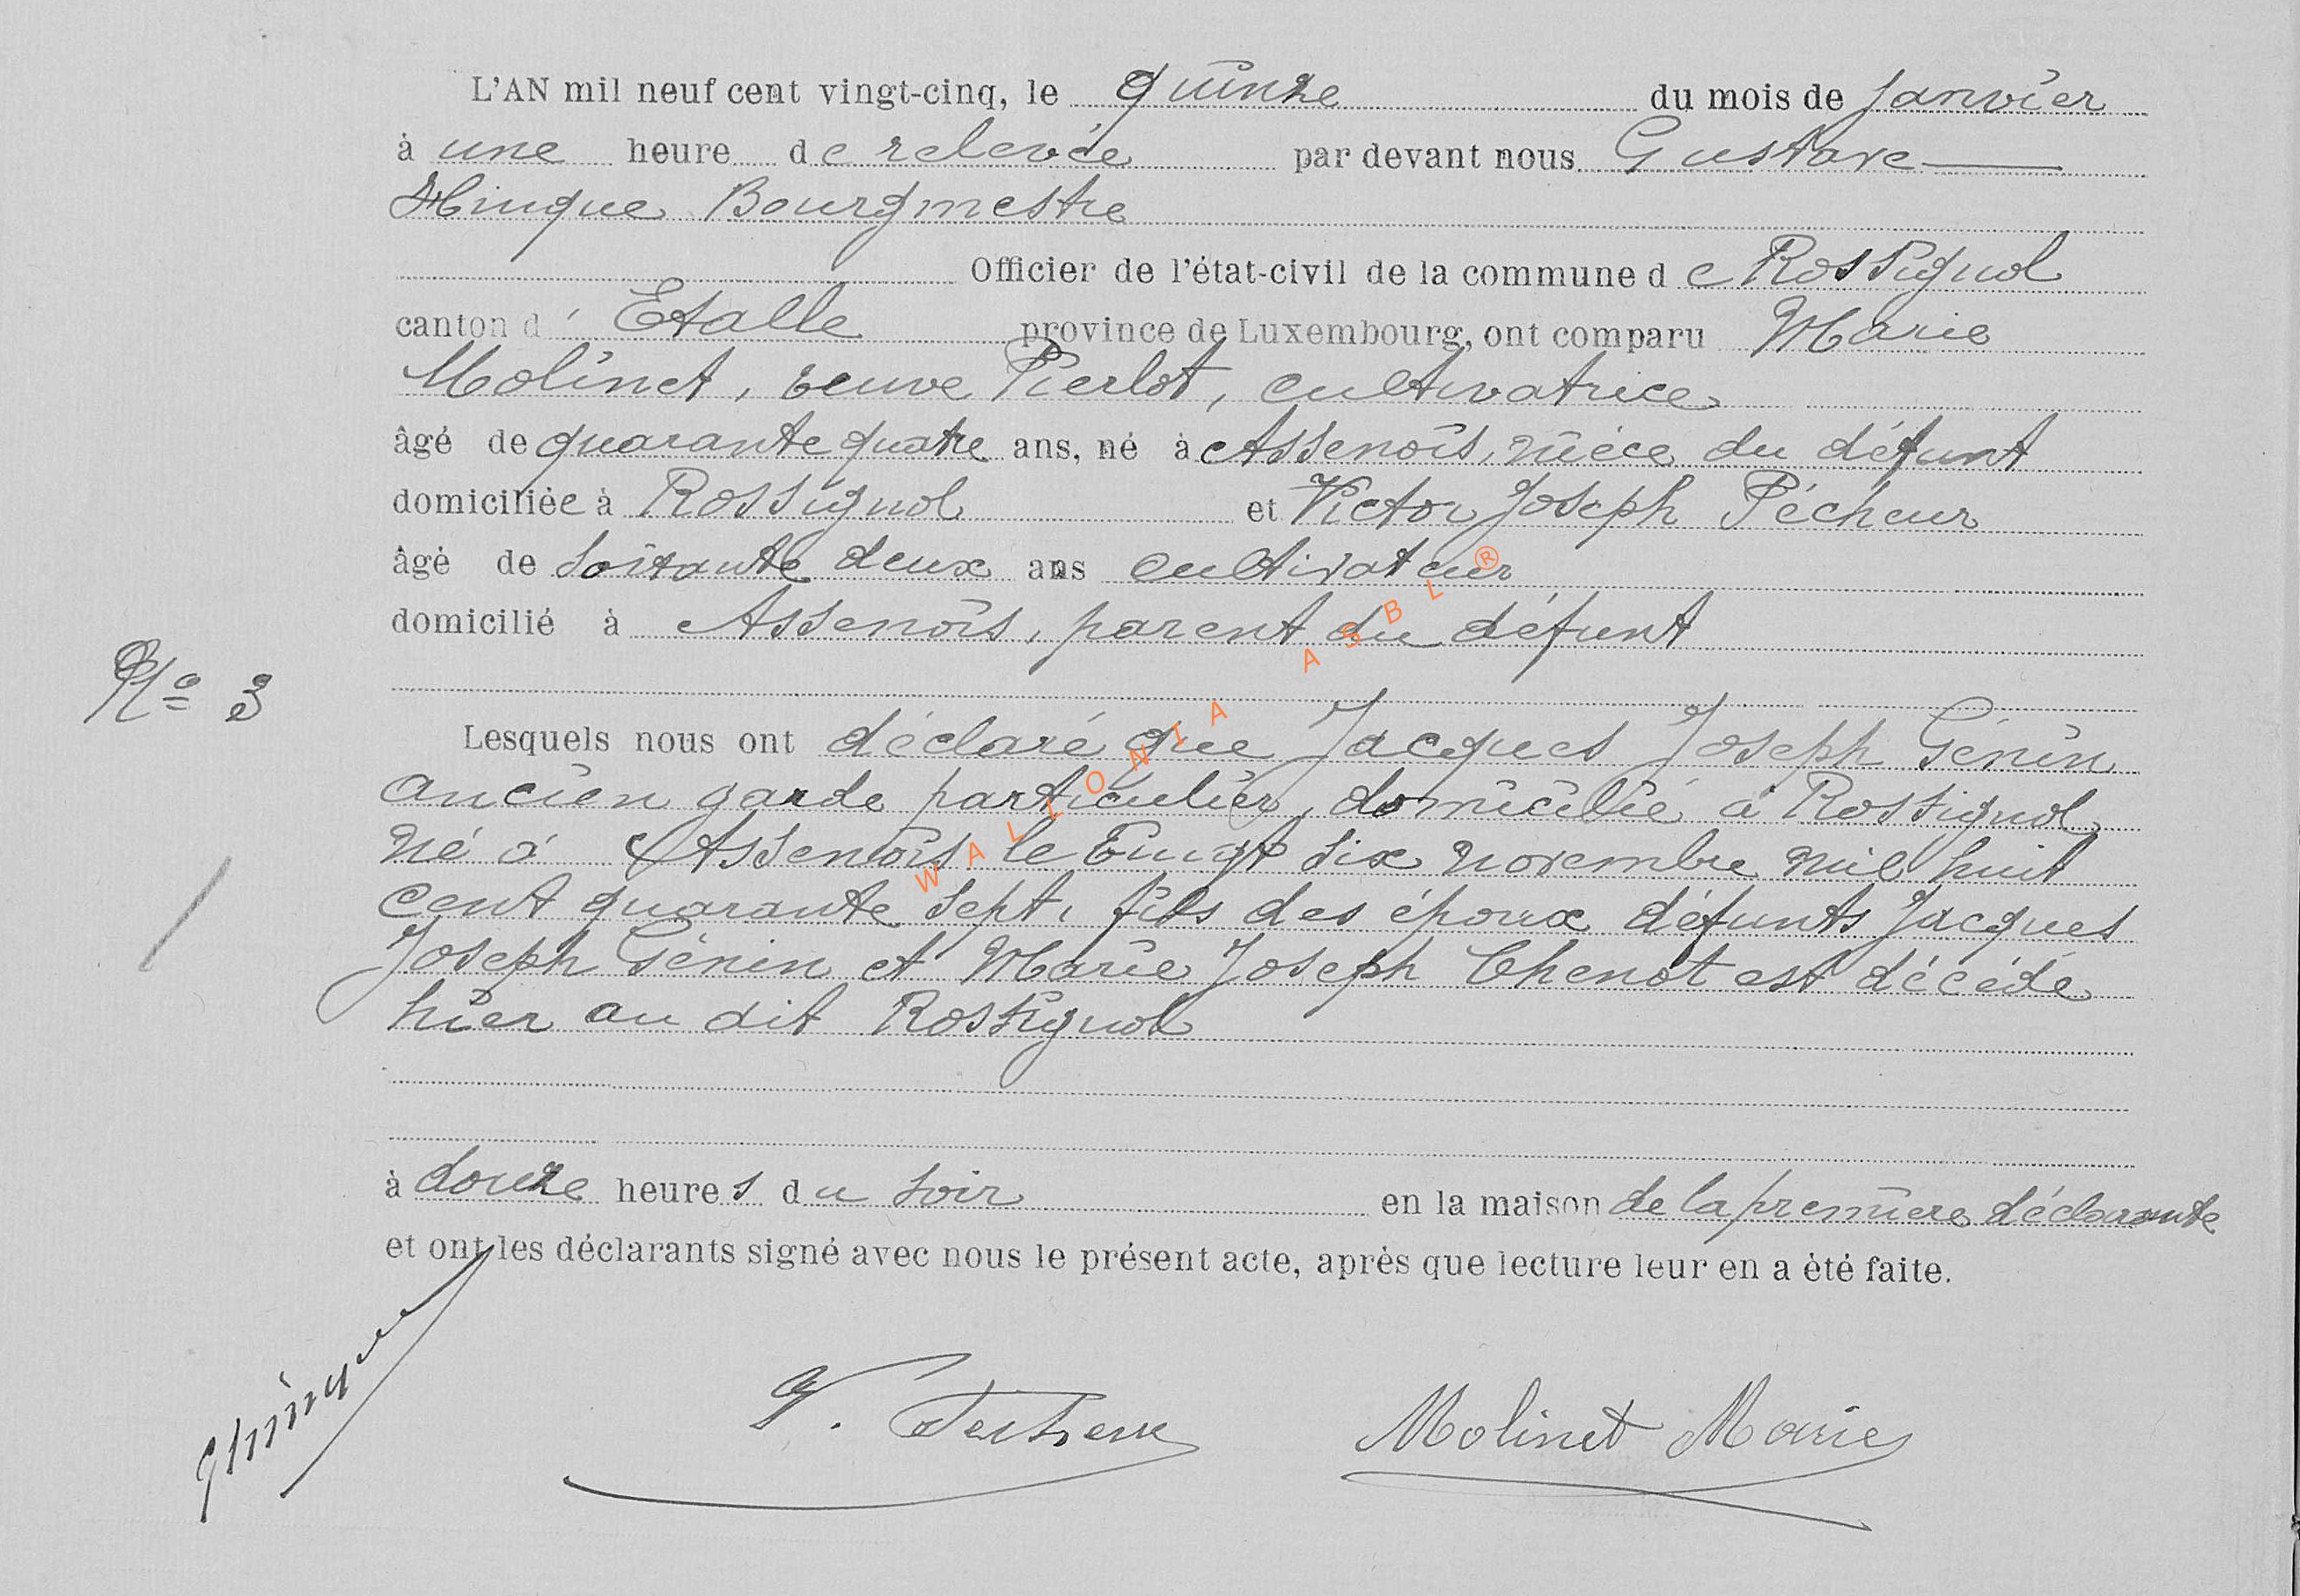 L'AN mil neuf cent vingt-cinq, le quinze du mois de Janvier
à une heure de relevée par devant nous Gustave
Hinque Bourgmestre
Officier de l'état-civil de la commune de Rossignol
canton d'Etalle province de Luxembourg, ont comparu Marie
Molinet, veuve Pierlot, cultivatrice
âgé de quarante quatre ans, né à Assenois, nièce du défunt
domiciliée à Rossignol et Victor Joseph Pécheur
âgé de soixante deux ans cultivateur
domicilié à Assenois, parent du défunt
No 3
Lesquels nous ont déclaré que Jacques Joseph Génin
ancien garde particulier, domicilié à Rossignol
né à Assenois le vingt six novembre mil huit
cent quarante sept, fils des époux défunts Jacques
Joseph Génin et Marie Joseph Chenot est décédé
hier au dit Rossignol
à douze heures du soir en la maison de la première déclarante
et ont les déclarants signé avec nous le présent acte, après que lecture leur en a été faite.
GHinque
V. Molinet Marie
WALLONIA ASBL ®